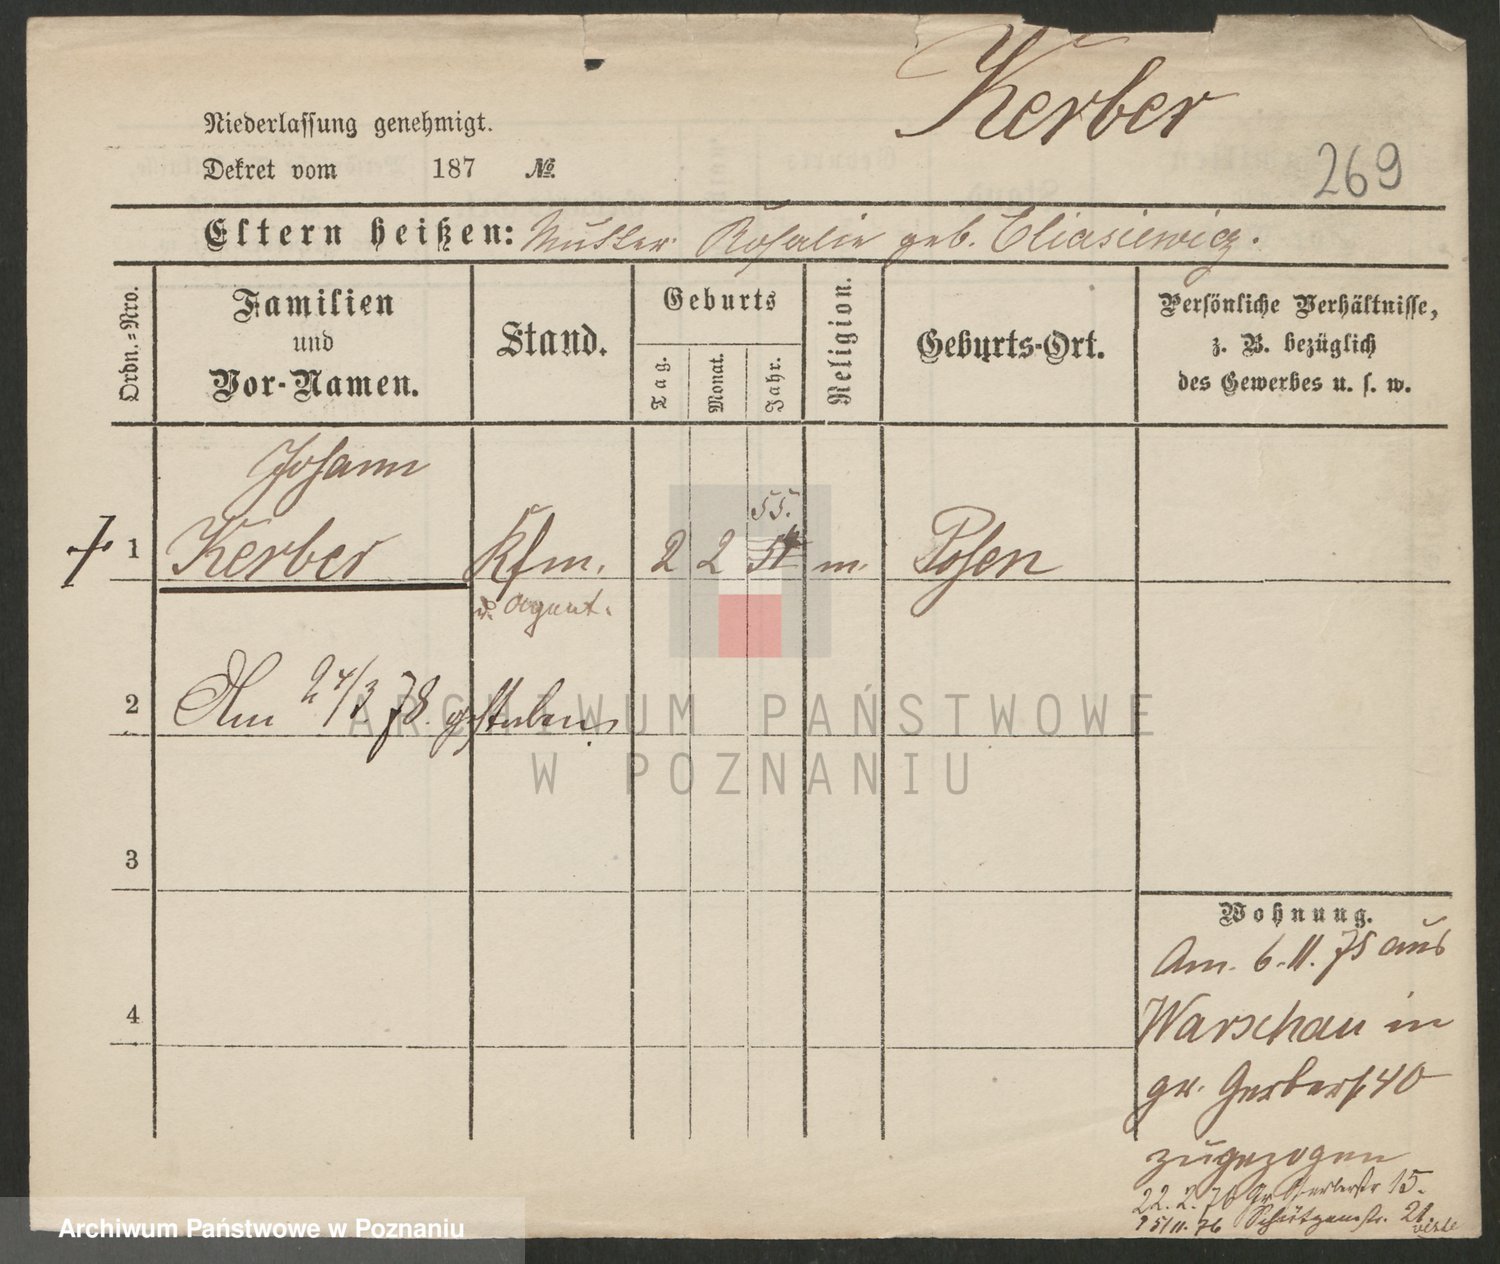 Kerber
269
Niederlassung genehmigt.
Dekret vom 187 №.
Eltern heißen: Mutter Rosalie geb. Eliasiewicz.
Ordn.-Nro.
Familien
und
Vor-Namen.
Stand.
Geburts
Tag.
Monat.
Jahr.
Religion.
Geburts-Ort.
Persönliche Verhältnisse,
z. B. bezüglich
des Gewerbes u. s. w.
Johann
55.
1 Kerber Kfm. 2 2 54 m. Posen
Agent.
2 Am 24/3 78. gestorben
3
4
Wohnung.
Am. 6.11.75 aus
Warschau in
gr. Gerberst. 40
zugezogen
22.2.76 Gr. Gerberstr 15.
25/11.76 Schützenstr. 21.
ARCHIWUM PAŃSTWOWE
W POZNANIU
Archiwum Państwowe w Poznaniu